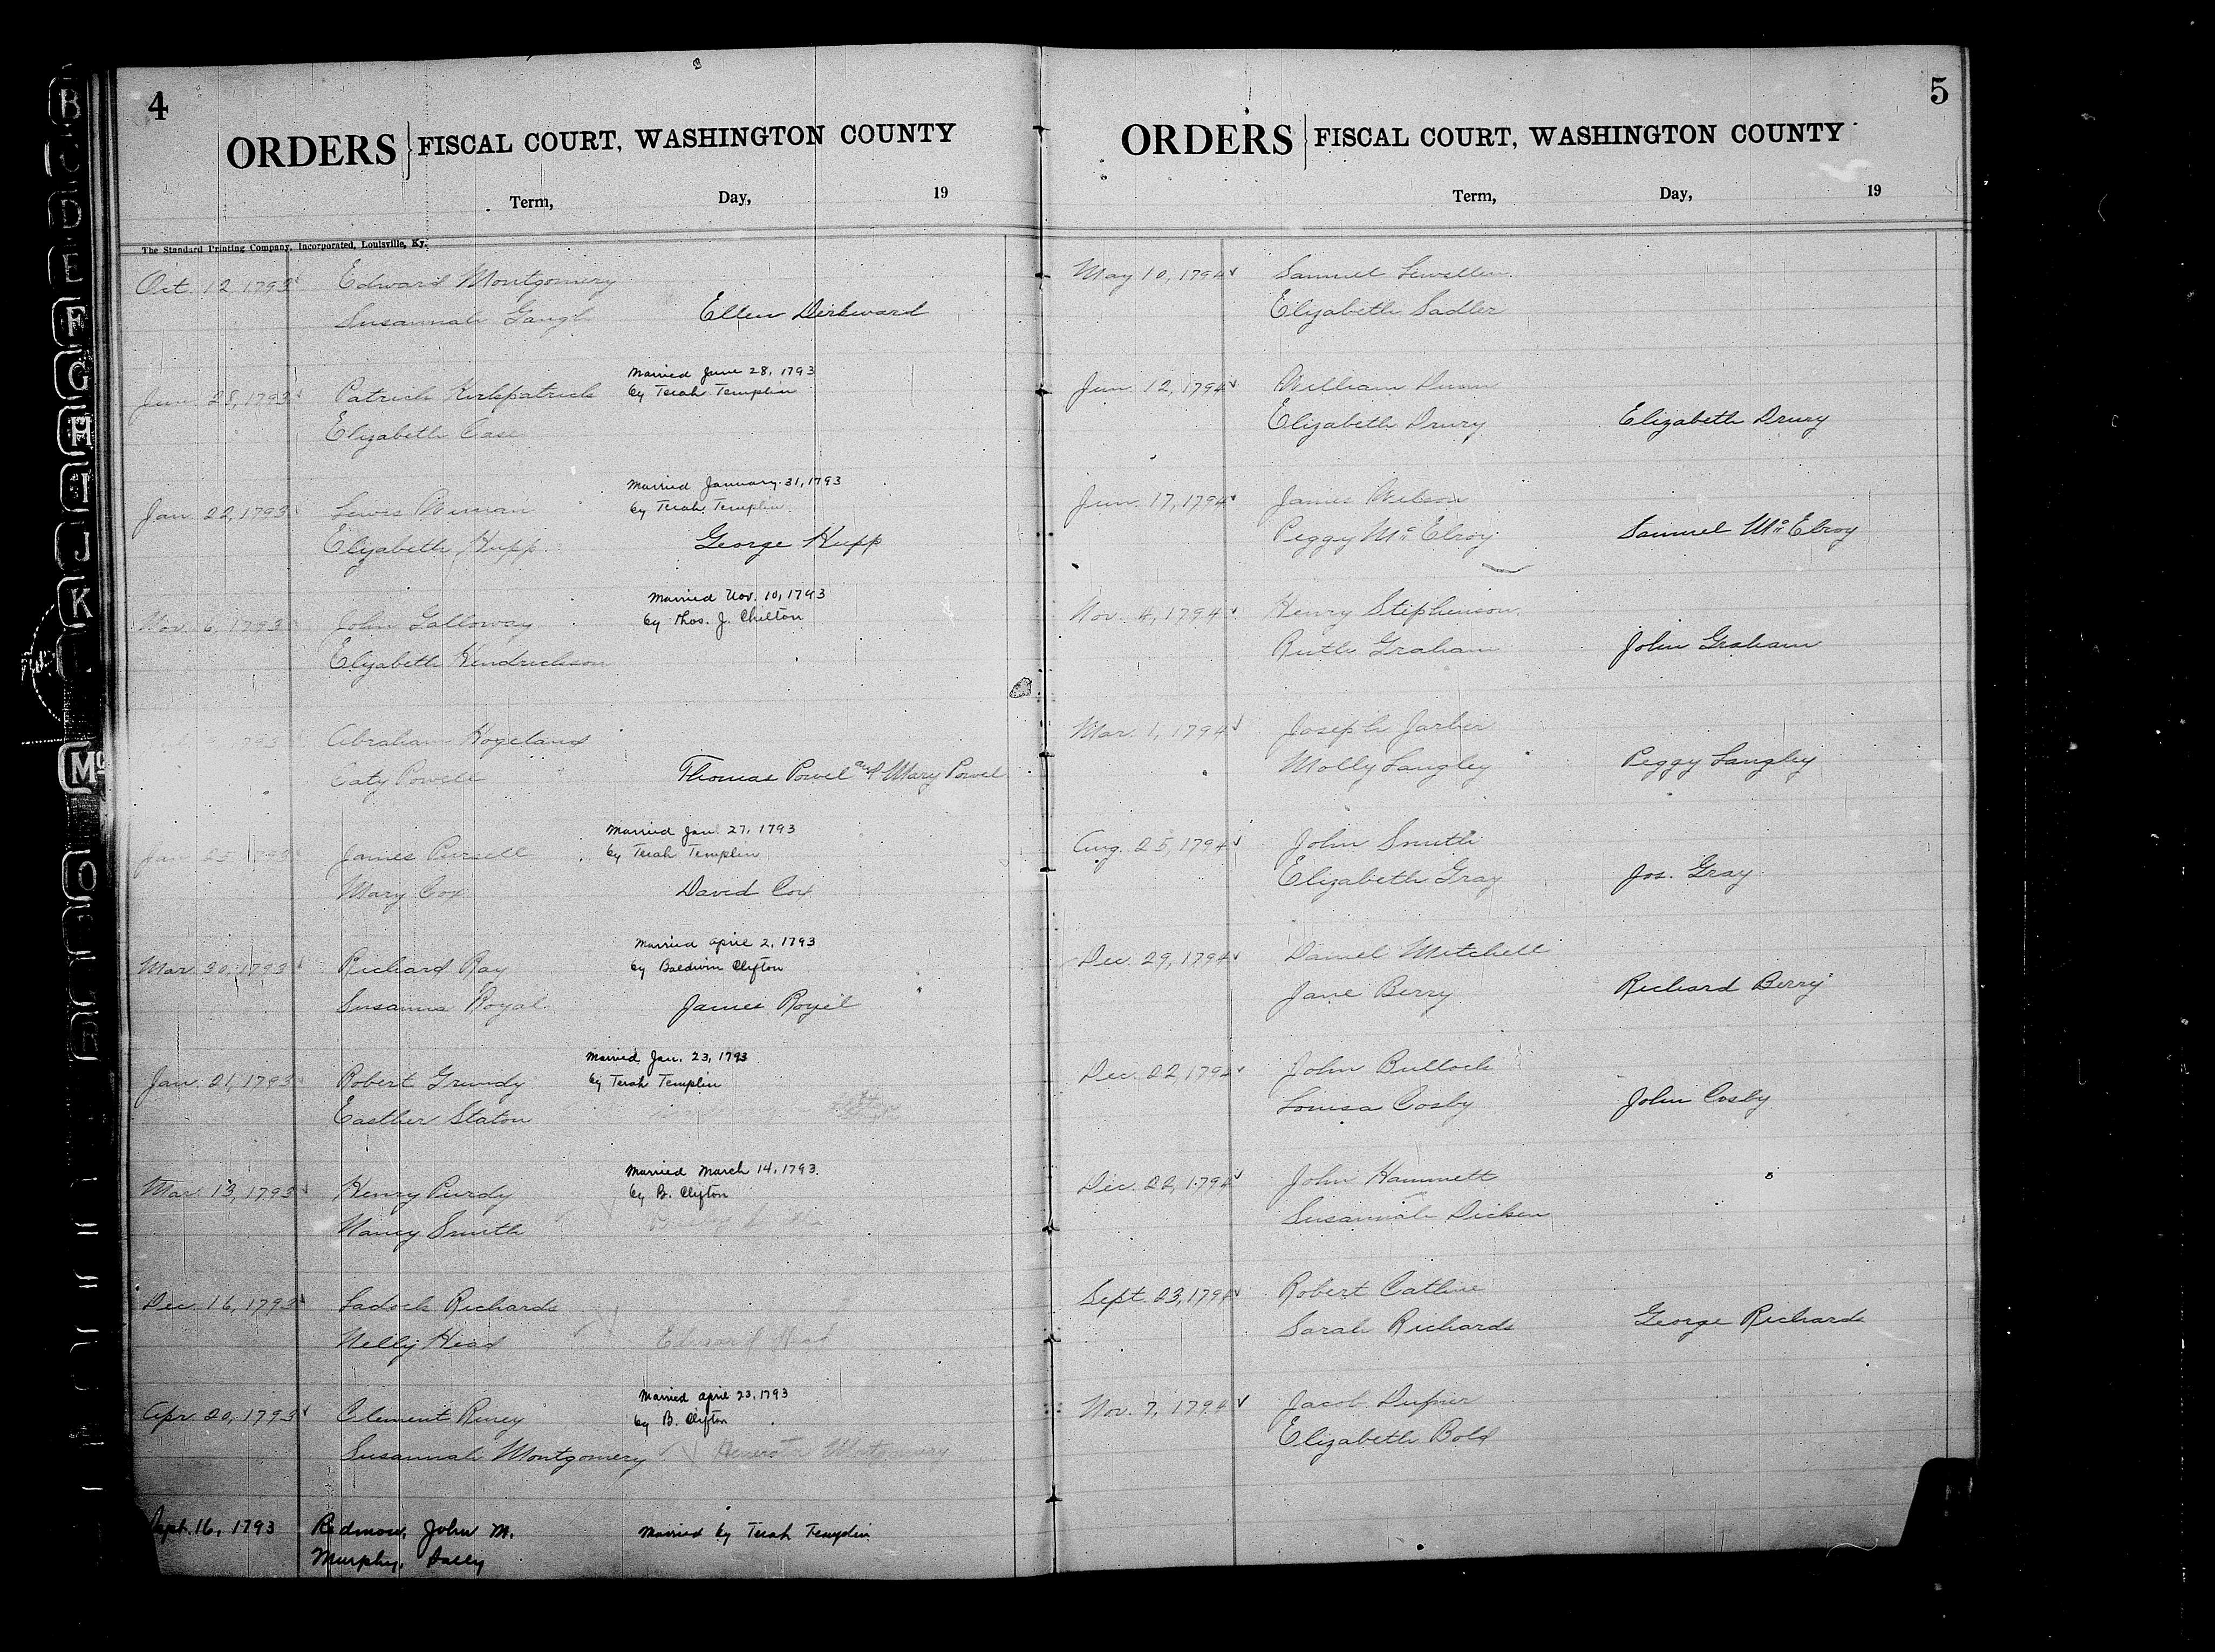 4
ORDERS } FISCAL COURT, WASHINGTON COUNTY
Term, Day, 19
The Standard Printing Company, Incorporated, Louisville, Ky.
Oct. 12 1793 Edward Montgomery
Susannah Gaugh Ellen Dirkward
Married June 28, 1793
Jun. 28, 1793 Patrick Kirkpatrick by Terah Templin
Elizabeth Case
Married January 31, 1793
Jan. 22, 1793 Lewis by Terah Templin
Elizabeth Hupp George Hupp
Married Nov. 10, 1793
Nov. 6, 1793 John Galloway by Thos. J. Chilton
Elizabeth Hendrickson
1793 Abraham Hogeland
Caty Powell Thomas Powel and Mary Powel
Married Jan. 27, 1793
Jan. 25 1793 James Pursell by Terah Templin
Mary Cox David Cox
Married April 2, 1793
Mar. 30, 1793 Richard Ray by Baldwin Clifton
Susanna Royal James Royil
Married Jan. 23, 1793
Jan. 21, 1793 Robert Grundy by Terah Templin
Easther Staton
Married March 14, 1793.
Mar. 13, 1793 Henry Purdy by B. Clifton
Nancy Smith
Dec. 16, 1793 Zadock Richards
Nelly Head Edward Head
Married April 23, 1793
Apr. 20, 1793 Clement Riney by B. Clifton
Susannah Montgomery Montgomery
Sept. 16, 1793 Redmow, John M. Married by Terah Templin
Murphy, Sally
5
ORDERS } FISCAL COURT, WASHINGTON COUNTY
Term, Day, 19
May 10, 1794 Samuel Lewellen
Elizabeth Sadler
Jun. 12, 1794 William Dunn
Elizabeth Drury Elizabeth Drury
Jun. 17, 1794 James Wilson
Peggy McElroy Samuel McElroy
Nov. 4, 1794 Henry Stephenson
Ruth Graham John Graham
Mar. 1, 1794 Joseph Jarber
Molly Langley Peggy Langley
Aug. 25, 1794 John Smith
Elizabeth Gray Jos. Gray
Dec. 29, 1794 Daniel Mitchell
Jane Berry Richard Berry
Dec. 22, 1794 John Bullock
Louisa Cosby John Cosby
Dec. 22, 1794 John Hammett
Susannah Dicken
Sept. 23, 1794 Robert Catline
Sarah Richards George Richards
Nov. 7, 1794 Jacob Dufner
Elizabeth Bold